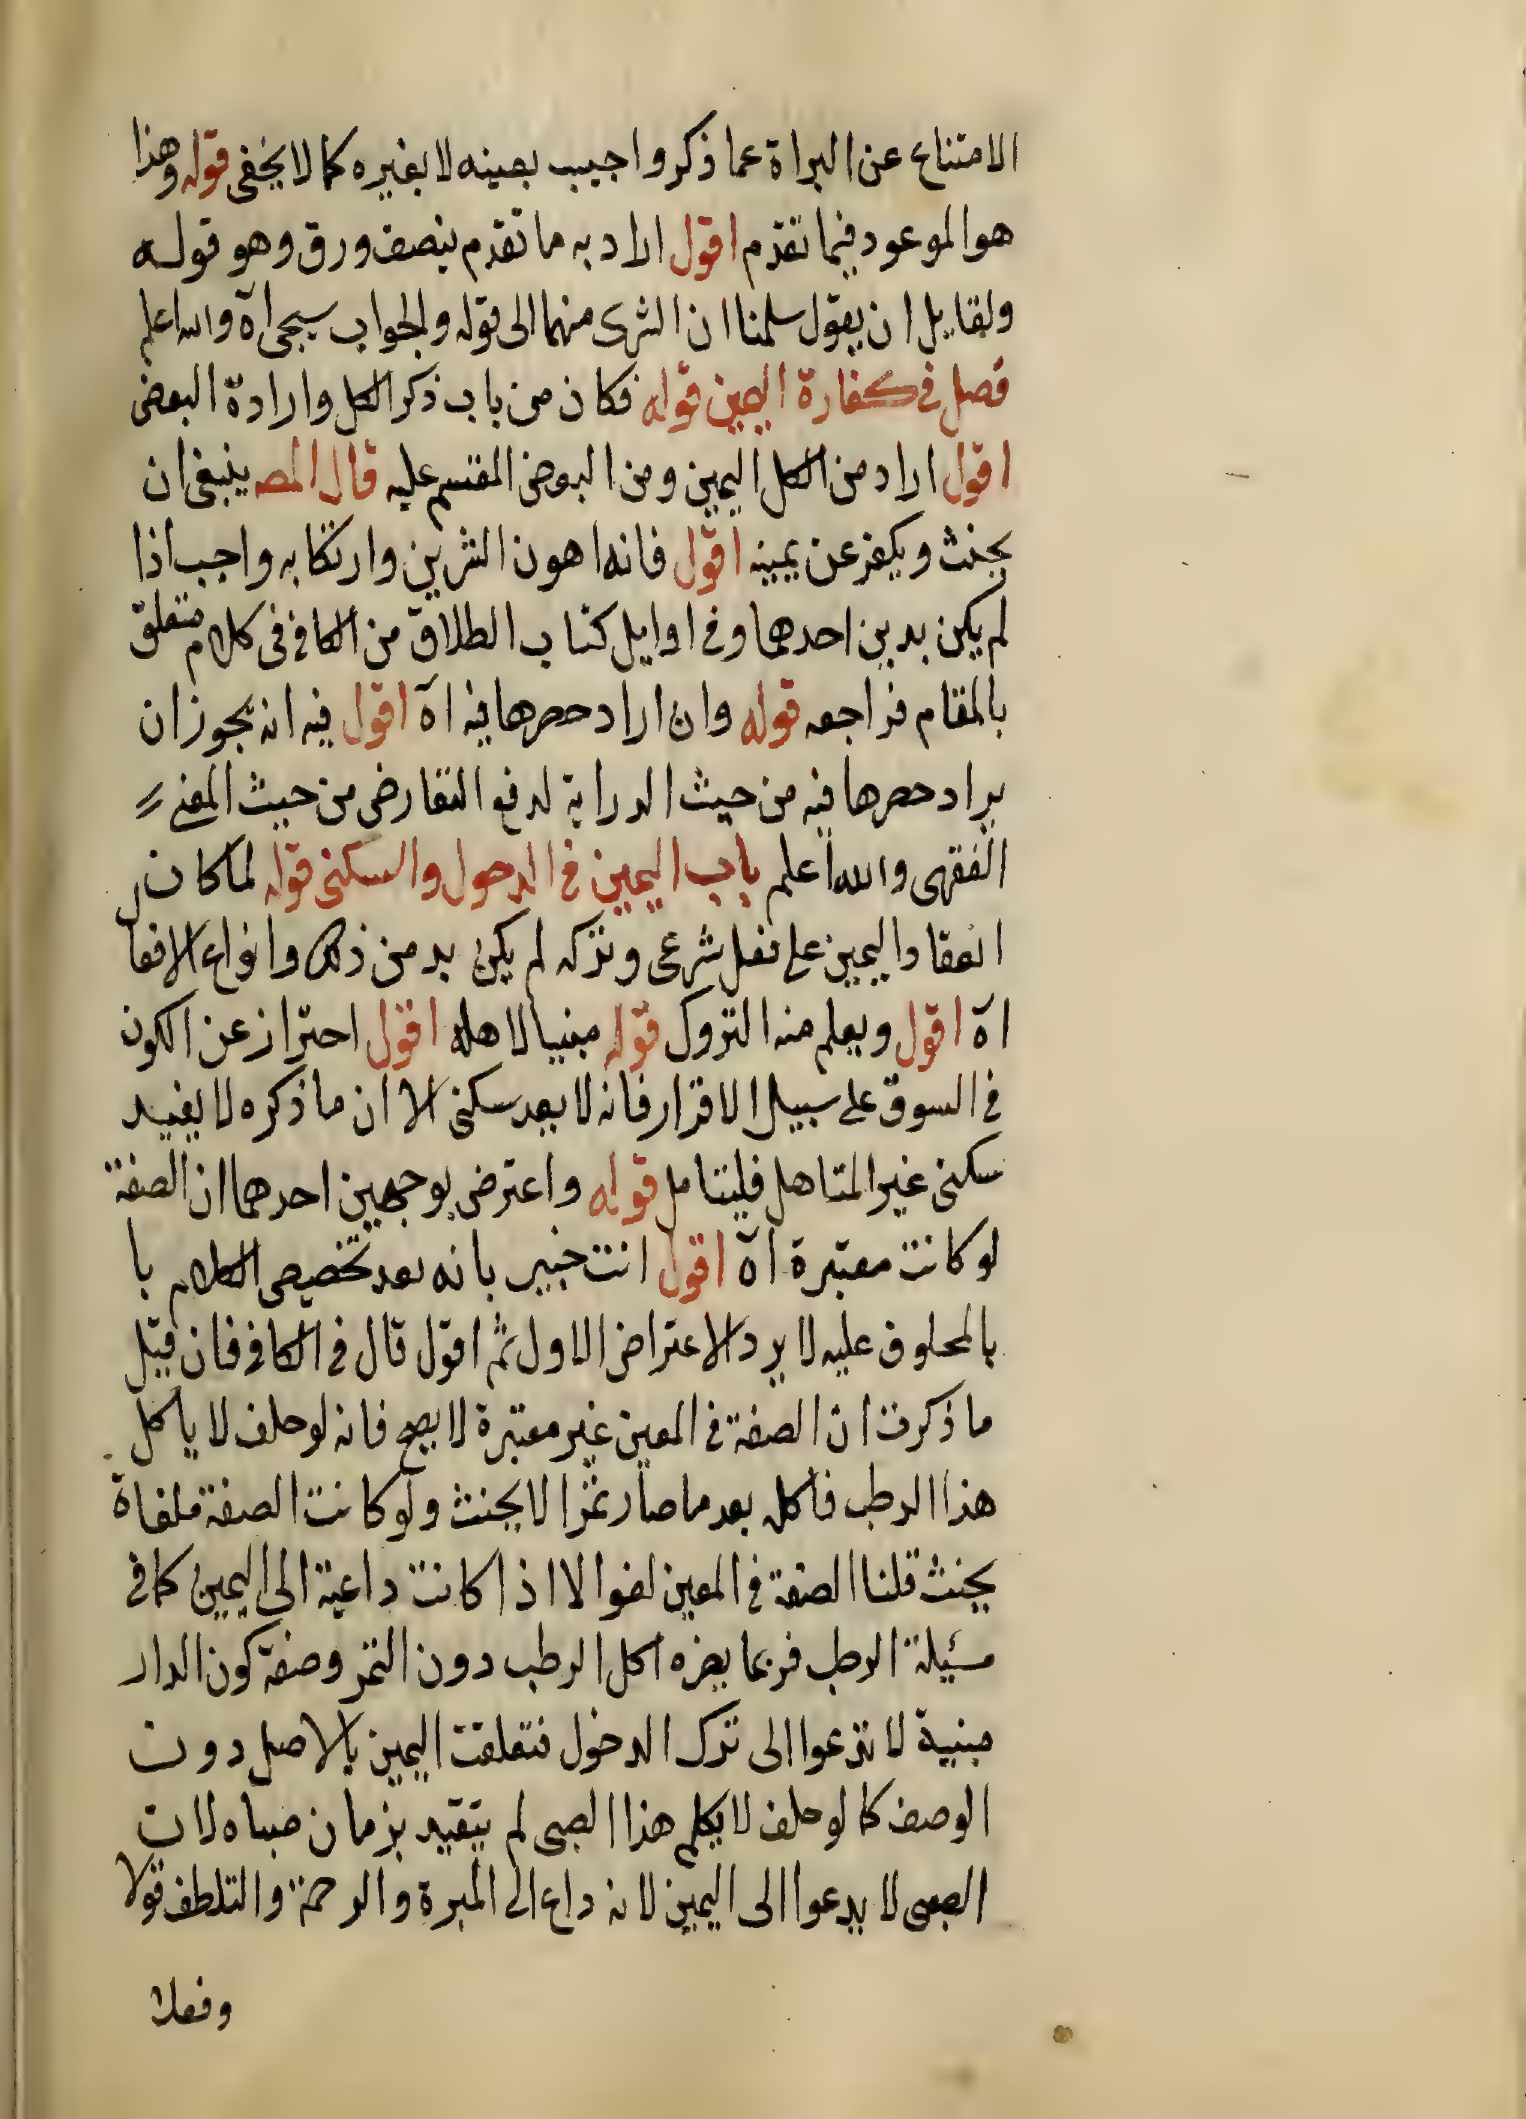 الامتناع عن البراة عما ذكر واجيب بعينه لا بغيره كما لا يخفى قوله وهذا
هو الموعود فيما تقدم اقول اراد به ما تقدم بنصف ورق وهو قوله
ولقايل ان يقول سلمنا ان الشرى منهما الى قوله والجواب سيجى اه والله اعلم
فصل في كفارة اليمين قوله فكان من باب ذكر الكل وارادة البعض
اقول اراد من الكل اليمين ومن البعض المقسم عليه قال المصه ينبغى ان
يحنث ويكفر عن يمينه اقول فانه اهون الشرين وارتكابه واجب اذا
لم يكن بد من احدهما وفي اوايل كتاب الطلاق من الكافي في كلام متعلق
بالمقام فراجعه قوله وان اراد حصرها فيه اه اقول فيه انه يجوز ان
يراد حصرها فيه من حيث الدراية لدفع التعارض من حيث المعنى
الفقهى والله اعلم باب اليمين في الدخول والسكنى قوله لما كان
انعقاد اليمين على فعل شرعى وتركه لم يكن بد من ذلك وانواع الافعا
اه اقول ويعلم منه التروك قوله مبنيا لاهله اقول احتراز عن الكون
في السوق على سبيل الاقرار فانه لا يعد سكنى الا ان ما ذكره لا يفيد
سكنى غير المتاهل فليتامل قوله واعترض بوجهين احدهما ان الصفة
لو كانت معتبرة اه اقول انت خبير بانه بعد تخصيص الكلام با
بالمحلوف عليه لا يرد الاعتراض الاول ثم اقول قال في الكافي فان قيل
ما ذكرت ان الصفة في المعين غير معتبرة لا يصح فانه لو حلف لا ياكل
هذا الرطب فاكله بعد ما صار تمرا لا يحنث ولو كانت الصفة ملغاة
يحنث قلنا الصفة في المعين لغو الا اذا كانت داعية الى اليمين كما في
مسيلة الرطب فربما يضره اكل الرطب دون التمر وصفة كون الدار
مبنية لا تدعوا الى ترك الدخول فتعلقت اليمين بالاصل دون
الوصف كما لو حلف لا يكلم هذا الصبى لم يتقيد بزمان صباه لان
الصبى لا يدعوا الى اليمين لانه داع الى المبرة والرحمة والتلطف قولا
وفعلا